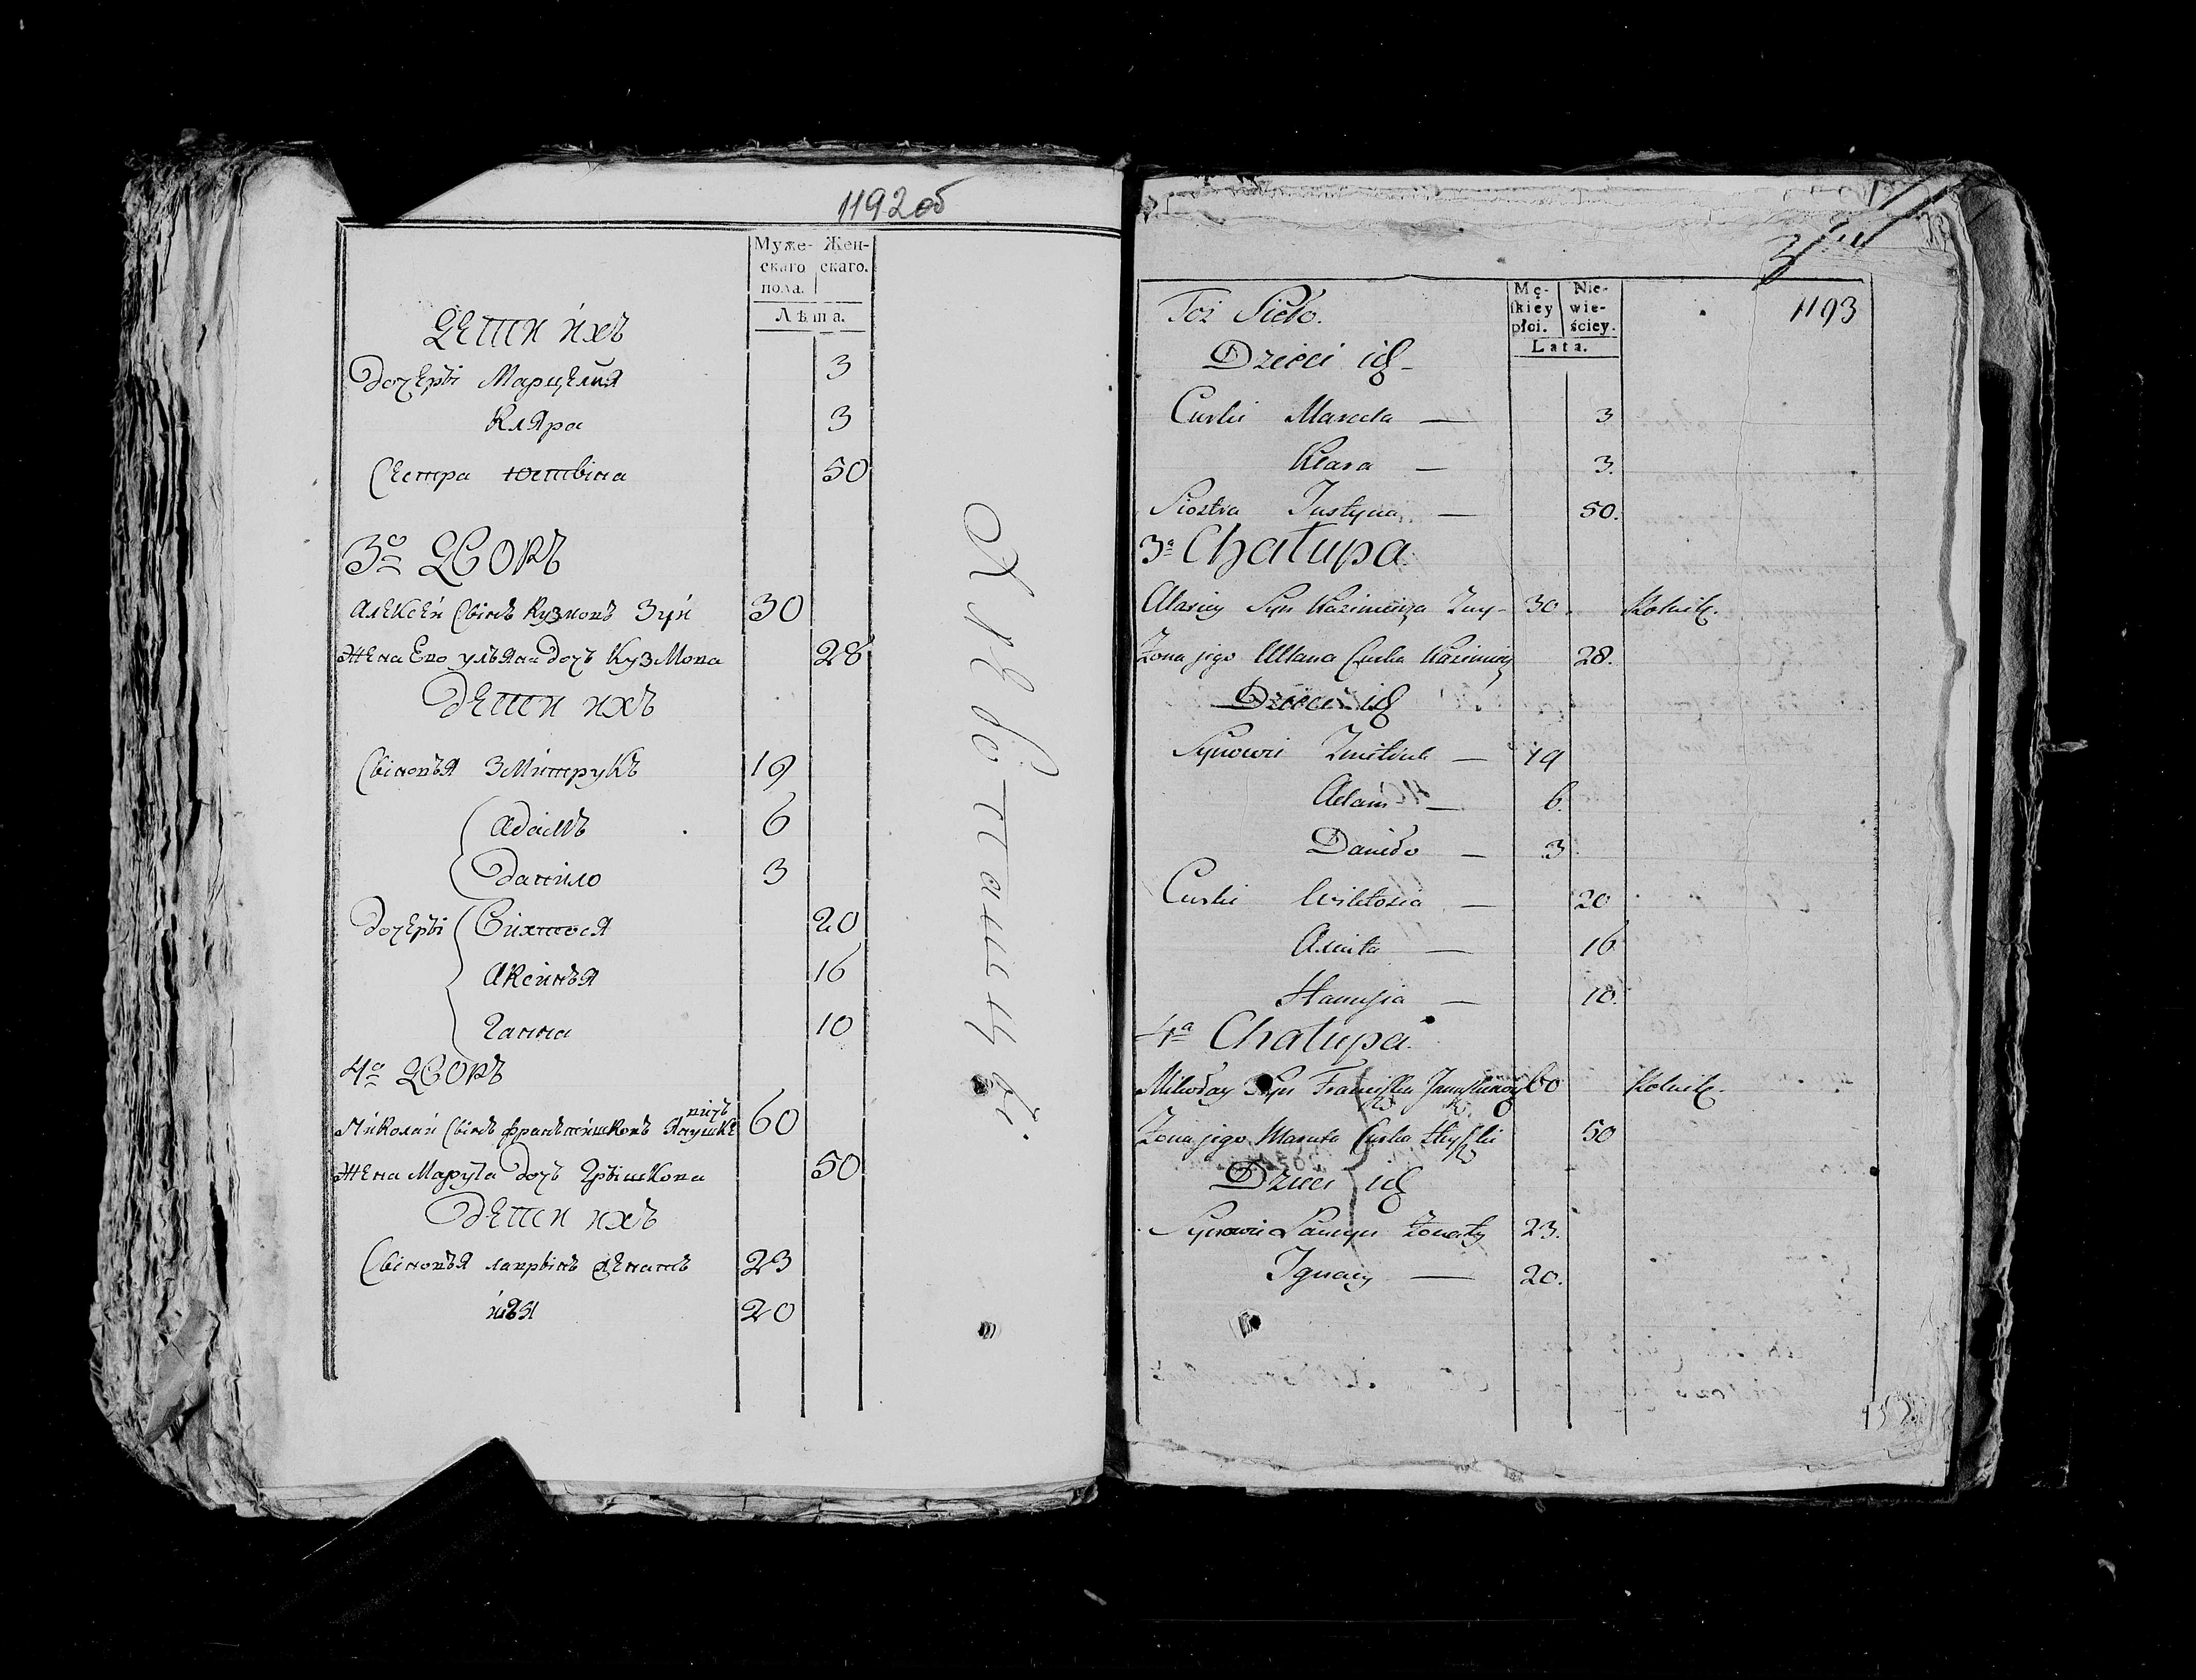 1192об
Муже- Жен-
скаго скаго.
пола.
Лѣта.
Дети ихъ
Дочеры Марцелия 3
Кляра 3
Сестра Юствіна 50
3й Дворъ
Алексей Сынъ Кузмовъ Зуй 30
Жена Ево ульяна Дочъ Кузмова 28
Дети ихъ
Сыновья Змитрукъ 19
Адамъ 6
Данило 3
Дочеры Вихтося 20
Аксинья 16
Ганна 10
4й Дворъ
Николай Сынъ францишковъ Янушке 60
вичъ
Жена Марута Дочъ Грышкова 50
Дети ихъ
Сыновья лаврынъ женатъ 23
20
1193
Toż Sioło.
Mę- Nie-
skiey wie-
płci. ściey.
Lata.
Dzieci ich
Curki Marcela — 3
Klara — 3.
Siostra Justyna — 50.
3a Chałupa
Alaxiey Syn Kazimierza Zuy - 30. Rolnik.
Zona jego Ullana Curka Kazimierz 28.
Dzieci ich
Synowie Zmitruk — 19
Adam — 6.
Daniło — 3
Curki Wiktosia — 20
— 16
Hanusia — 10.
4a Chałupa.
Mikołay Syn Franciszka 60 Rolnik.
Zona jego Maruta Curka 50
Dzieci ich
Synowie Lauryn żonaty 23.
Ignacy — 20.